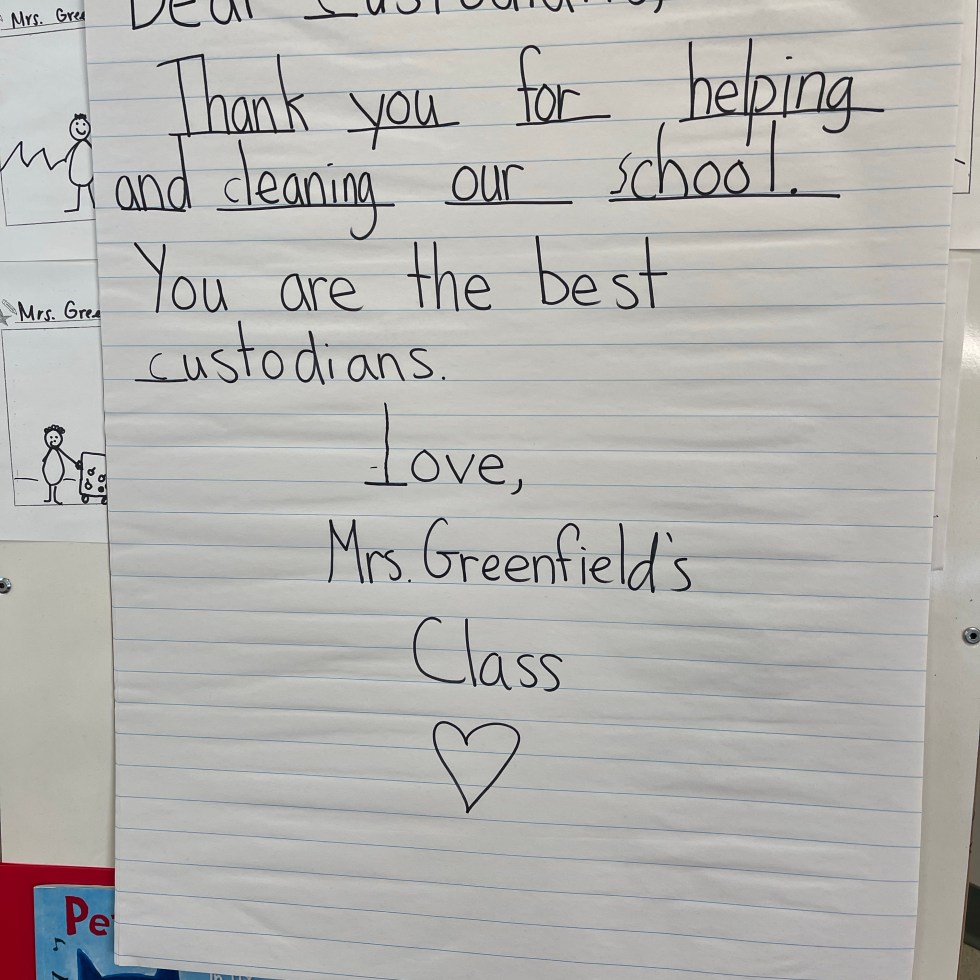 Mrs. Gree
Mrs. Gree
Dear Custodians,
Thank you for helping
and cleaning our school.
You are the best
custodians.
Love,
Mrs. Greenfield's
Class
Pe